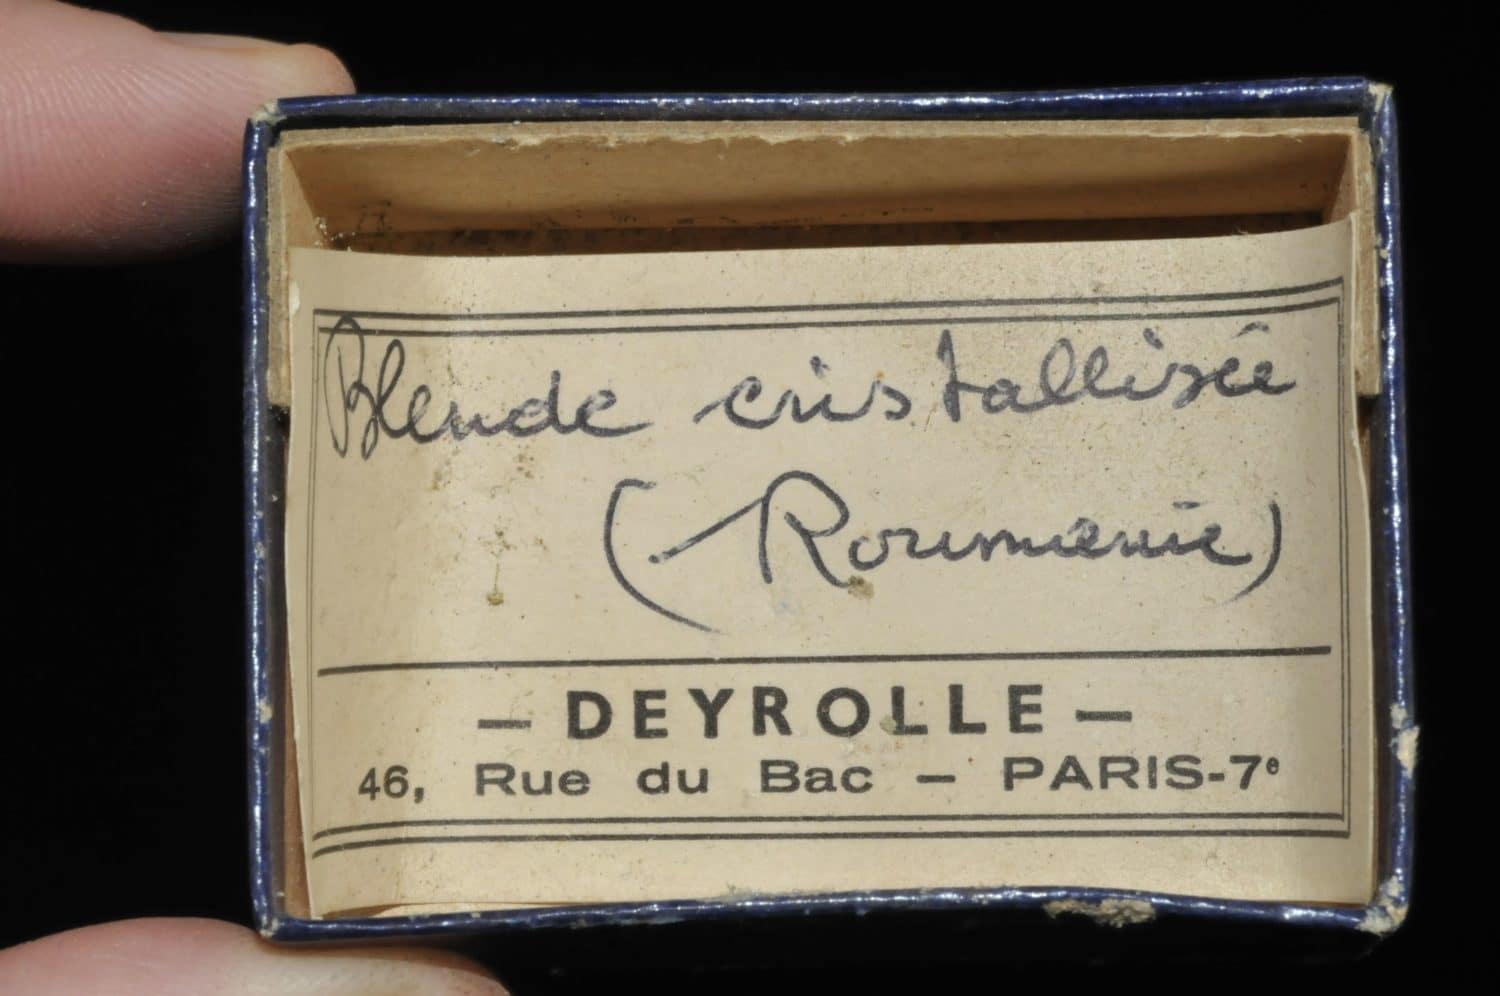 Blende cristallisée
(Roumanie)
— DEYROLLE —
46, Rue du Bac — PARIS-7e